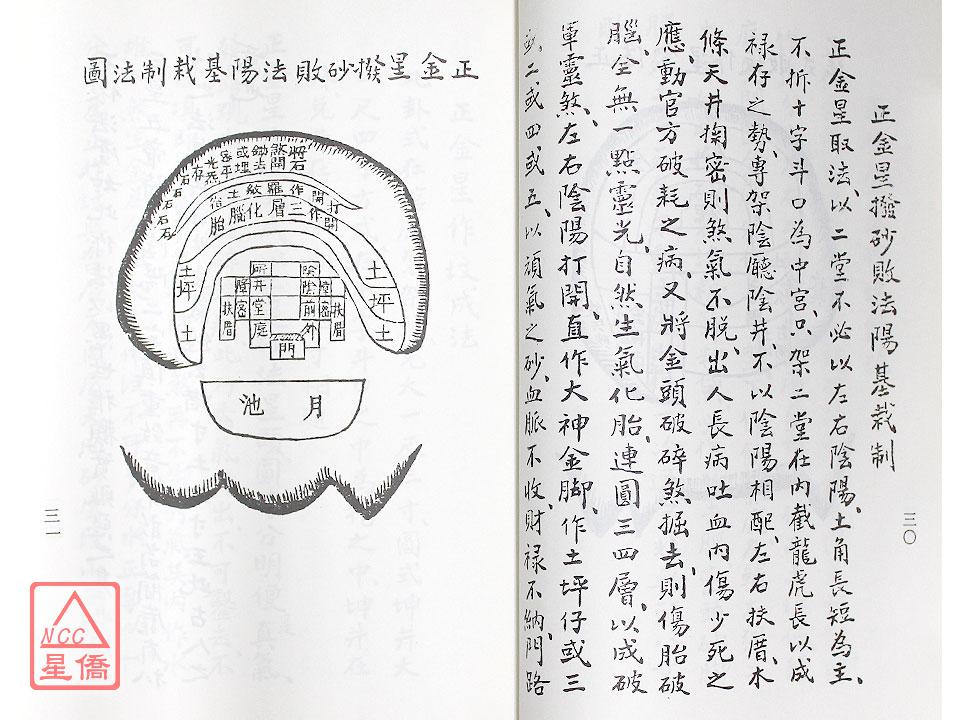 正金星撥砂敗法陽基裁制
正金星取法、以二堂不必以左右陰陽、土角長短為主、
不拆十字斗口為中宮、只架二堂在內截龍虎長以成
祿存之勢、專架陰廳陰井、不以陰陽相配、左右扶厝、木
條天井掏密則煞氣不脫、出人長病吐血內傷少死之
應、動官方破耗之病、又將金頭破碎煞掘去、則傷胎破
腦、全無一點靈光、自然生氣化胎、連圓三四層、以成破
軍靈煞、左右陰陽打開、直作大神金腳、作土坪仔或三
或二、或四或五、以頑氣之砂、血脈不收、財祿不納、門路
三〇
正金星撥砂敗法陽基裁制法圖
將石
煞間
鋤去
或埋
密平
光炁
存
石
石
石
石
打開作羅紋土宿
開作三層化腦胎
土坪土
土坪土
陰
陰
前
外
井
堂
庭
密
密
扶厝
扶厝
門
月池
三一
NCC
星僑